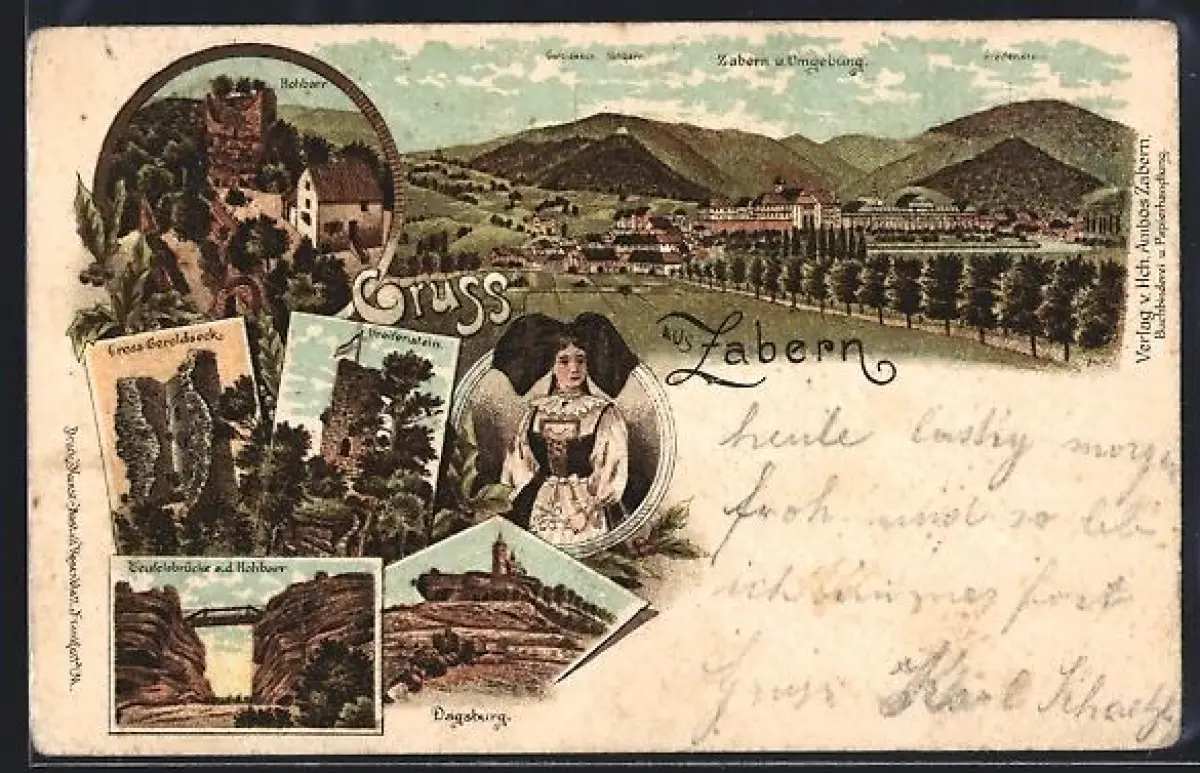 Hohbarr
Geroldseck Hohbarr
Zabern u. Umgebung.
Greifenstein
Gruss
aus Zabern
Gross-Geroldseck
Greifenstein.
Teufelsbrücke a.d. Hohbarr
Dagsburg.
Verlag v. Hch. Ambos Zabern.
Buchbinderei u. Papierhandlung.
heute lustig morgen
froh und so
ich immer fort
Gruss Karl